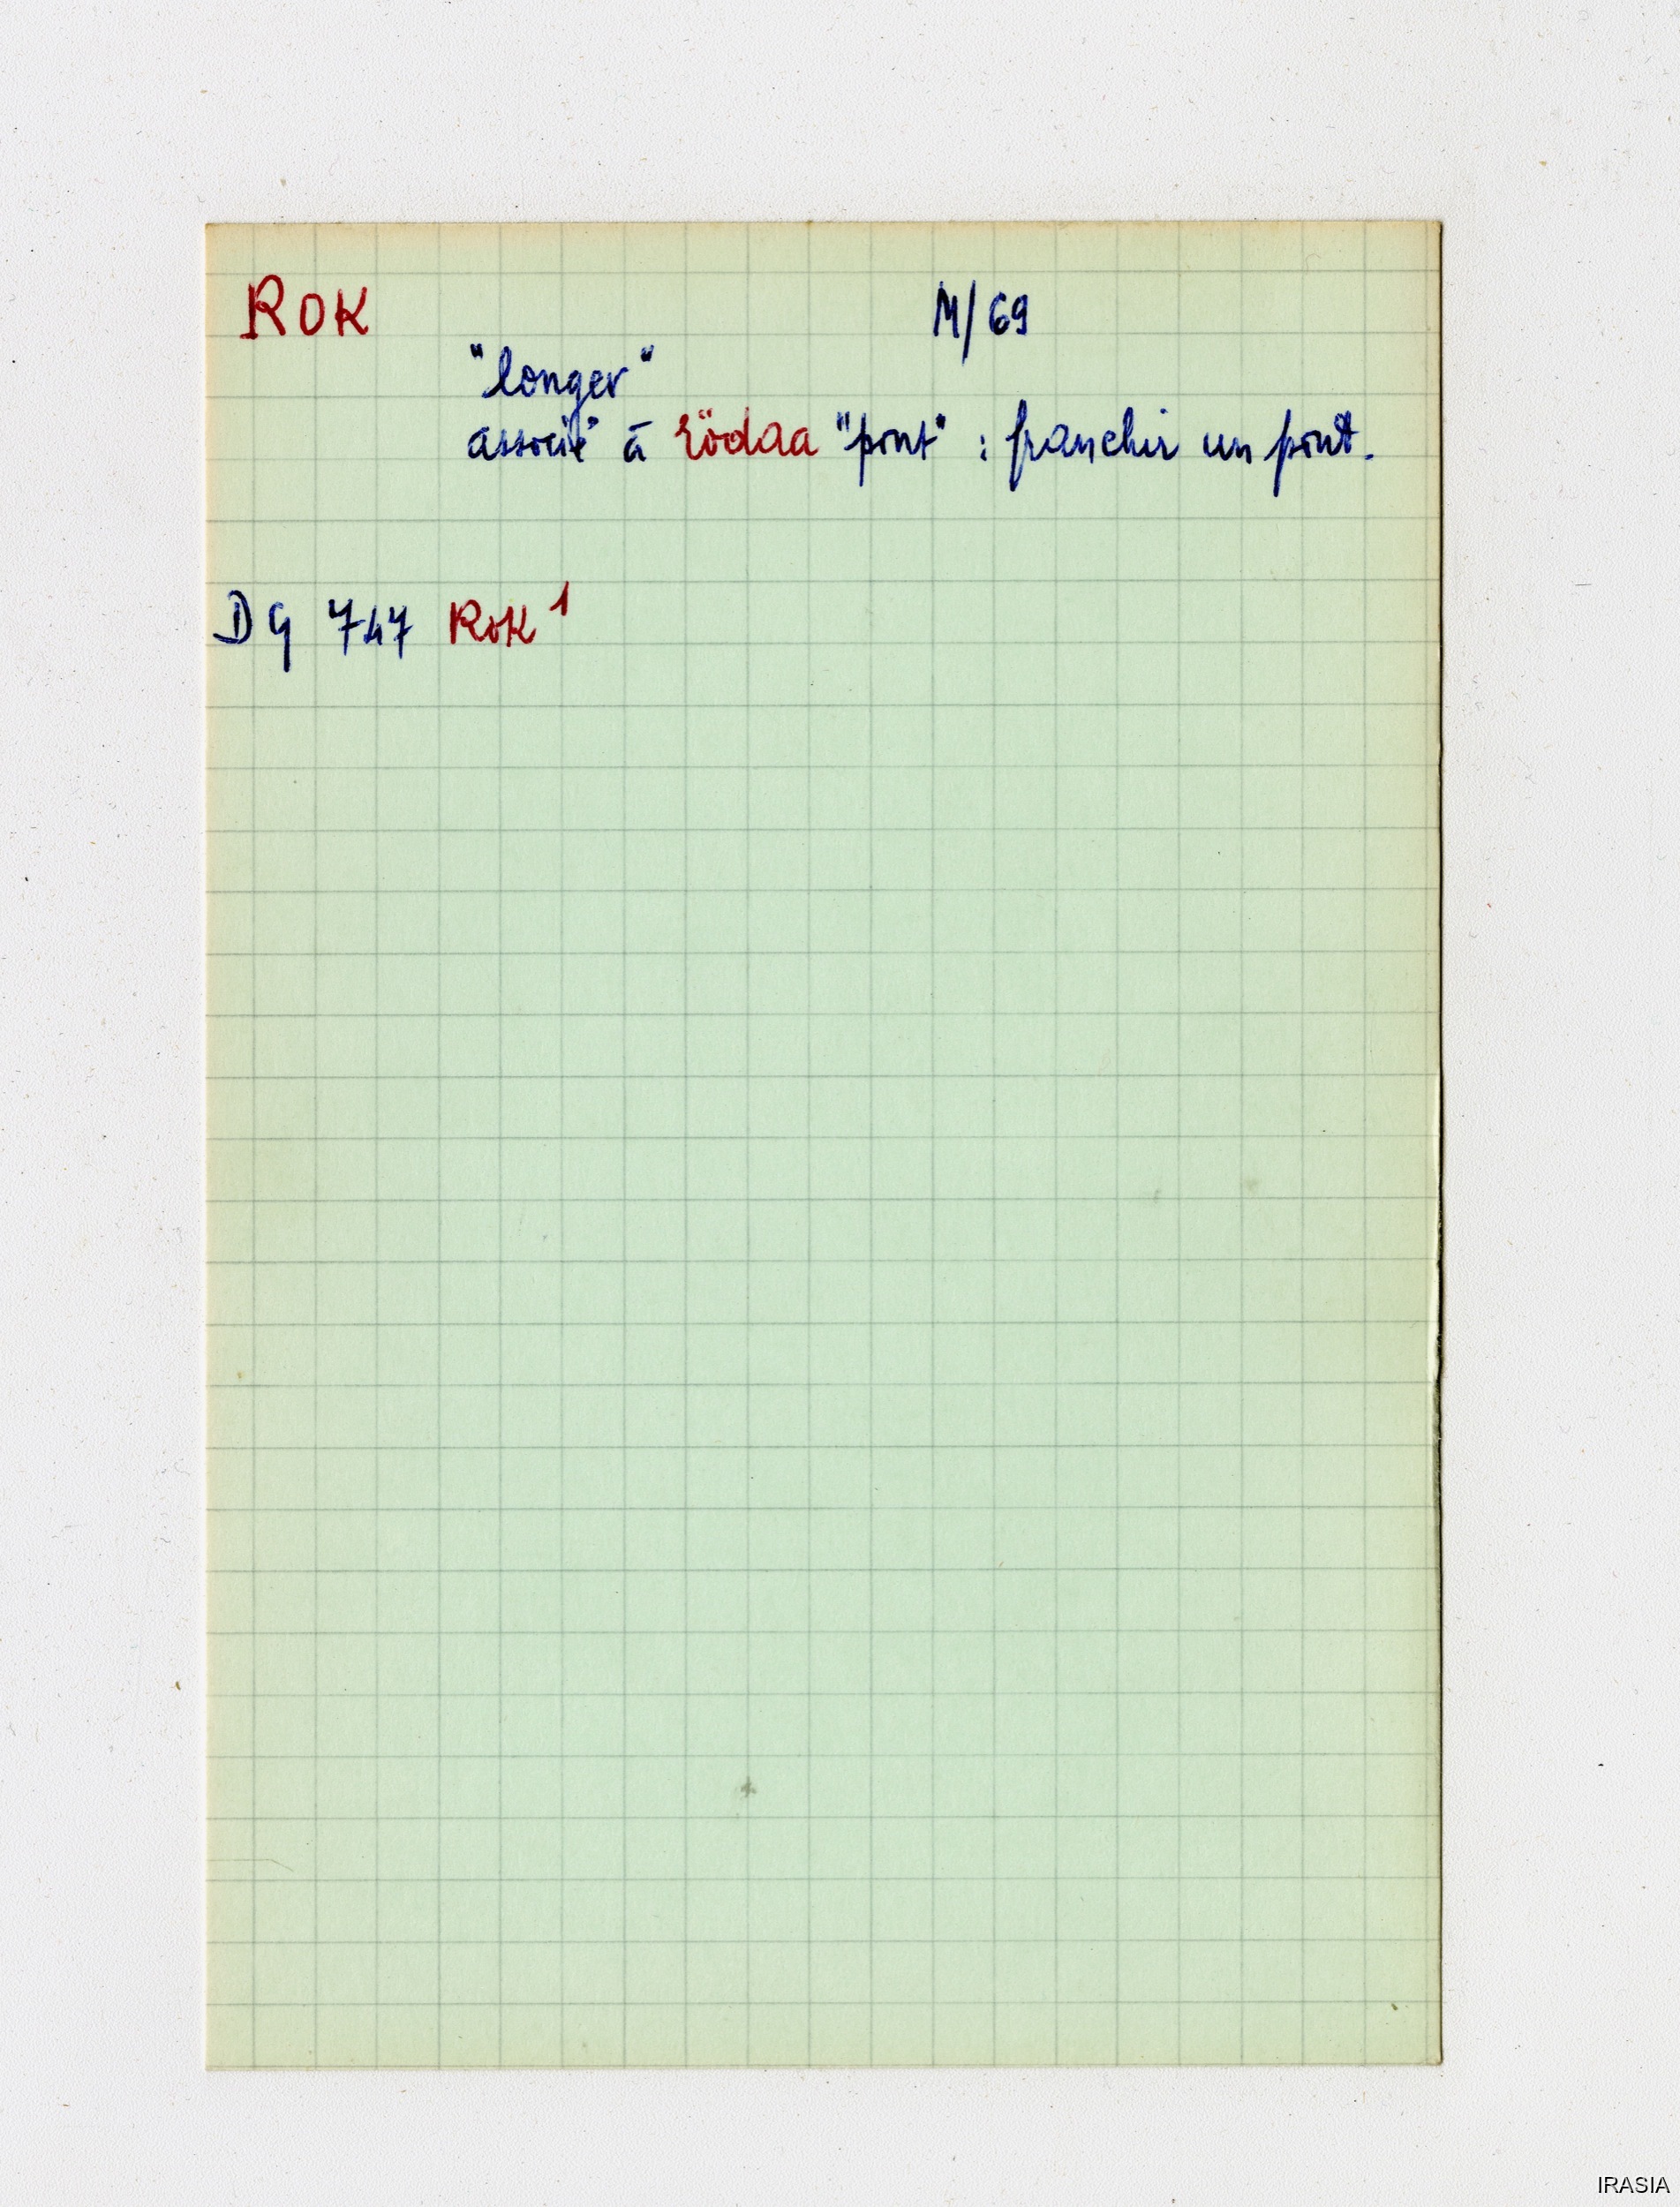 ROK M/69
"longer"
associé à rödaa "pont" : franchir un pont.
DG 747 Rok¹
IRASIA